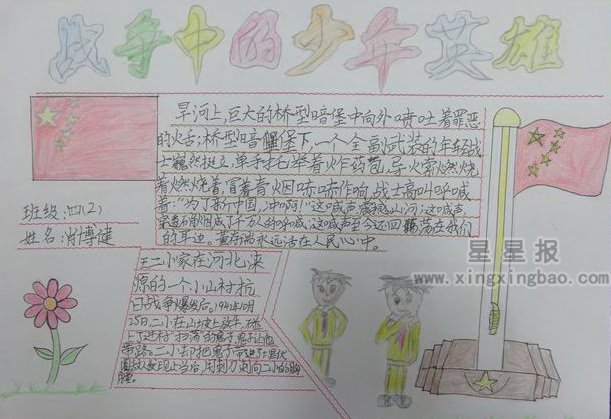 战争中的少年英雄
旱河上,巨大的桥型暗堡中向外喷吐着罪恶
的火舌;桥型暗堡下,一个全副武装的年轻战
士巍然挺立,单手托举着炸药包,导火索燃烧
着燃烧着,冒着青烟哧哧作响,战士高叫呼喊
着:“为了新中国,冲啊!”这喊声震撼山河;这喊声
的耳边。董存瑞永远活在人民心中。
班级:四(2)
姓名:肖博健
王二小家在河北涞
源的一个小山村抗
日战争爆发后。1941年10月
25日,二小在山坡上放牛,碰
上了进村扫荡的鬼子,鬼子让他
带路。二小却把鬼子带进了埋伏
星星报
xingxingbao.com